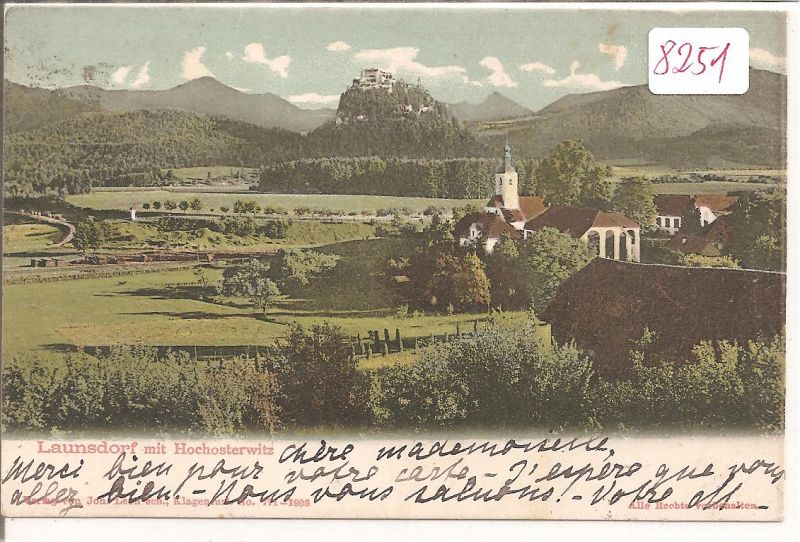 8251
Launsdorf mit Hochosterwitz
chère mademoiselle,
Merci bien pour votre carte - J'espère que vous
allez bien! - Nous vous saluons! - Votre
Verlag von Joh. Leon sen., Klagenfurt No. - 1903
Alle Rechte vorbehalten.